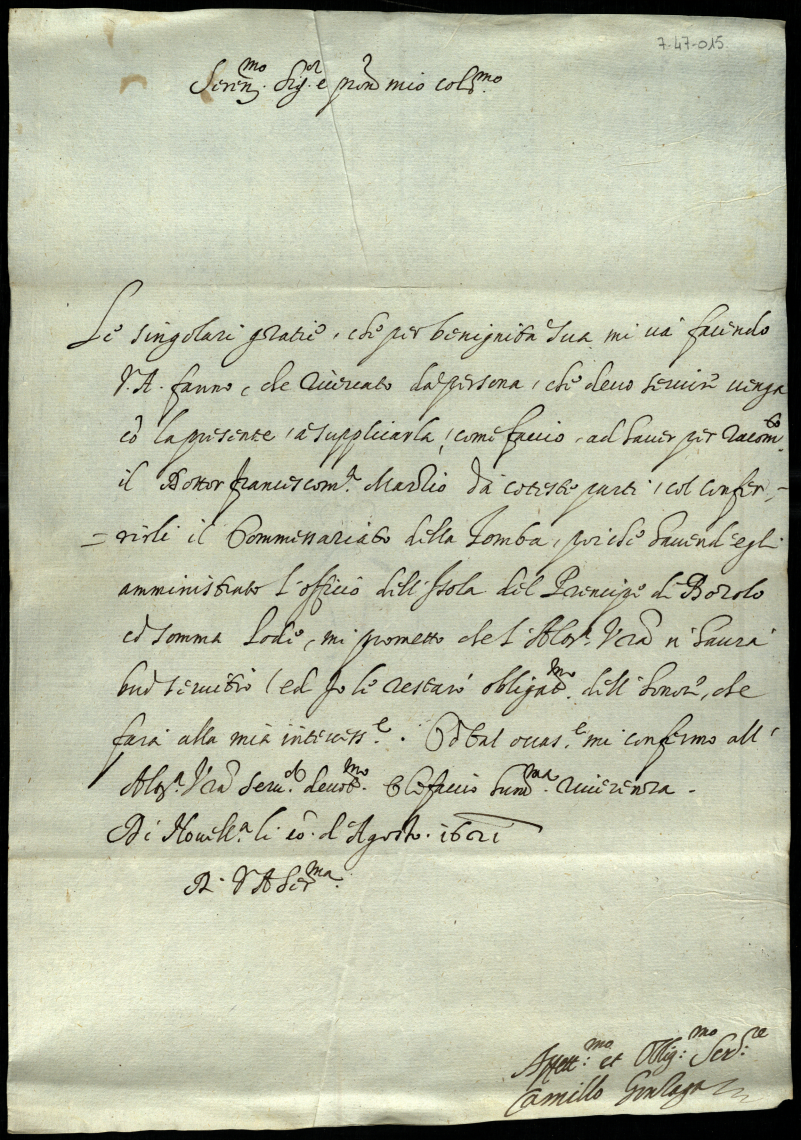 7-47-015
Seren.mo Sig.r e pron mio col.mo
Le singolari gratie, che per benignità sua mi và facendo
V.A. fanno, che ricercato da persona, che devo servire venga
cō la presente, à supplicarla, come faccio, ad haver per racom.to
il Dottor Francescom.a Marlio da coteste parti, col confer=
=rirli il Commissariato della Tomba, poiche havend'egli
amministrato l'officio dell'Isola del Principe di Bozolo
cō somma lode, mi prometto che l'Altez.a Vrā n'haurà
buō servitio, ed Io le restarò obligat.mo dell'honore, che
farà alla mia interess.e. Cō tal occas.e mi confermo all'
Altez.a Vrā Seru.e devot.mo e le faccio hum.ma riverenza.
Di Novell.a li d'Agosto. 1621
D. V A Ser.ma
Affett.mo et Oblig.mo Serd.re
Camillo Gonzaga